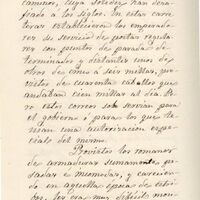 caminos, cuya solidez han desa-
fiado a los siglos. En estas car-
reteras establecieron los emperado-
res su servicio de postas regula-
res con puntos de parada de-
terminados y distantes unos de
otros de cinco a seis millas, pro-
vistos de cuarenta caballos que
andaban cien millas al día. Pe-
ro estos correos solo servían para
el gobierno y para los que te-
nían una autorización espe-
cial del mismo.
Provistos los romanos
de armaduras sumamente pe-
sadas e incomodas, y carecien-
do en aquella época de estri-
bos, les era muy difícil mon-